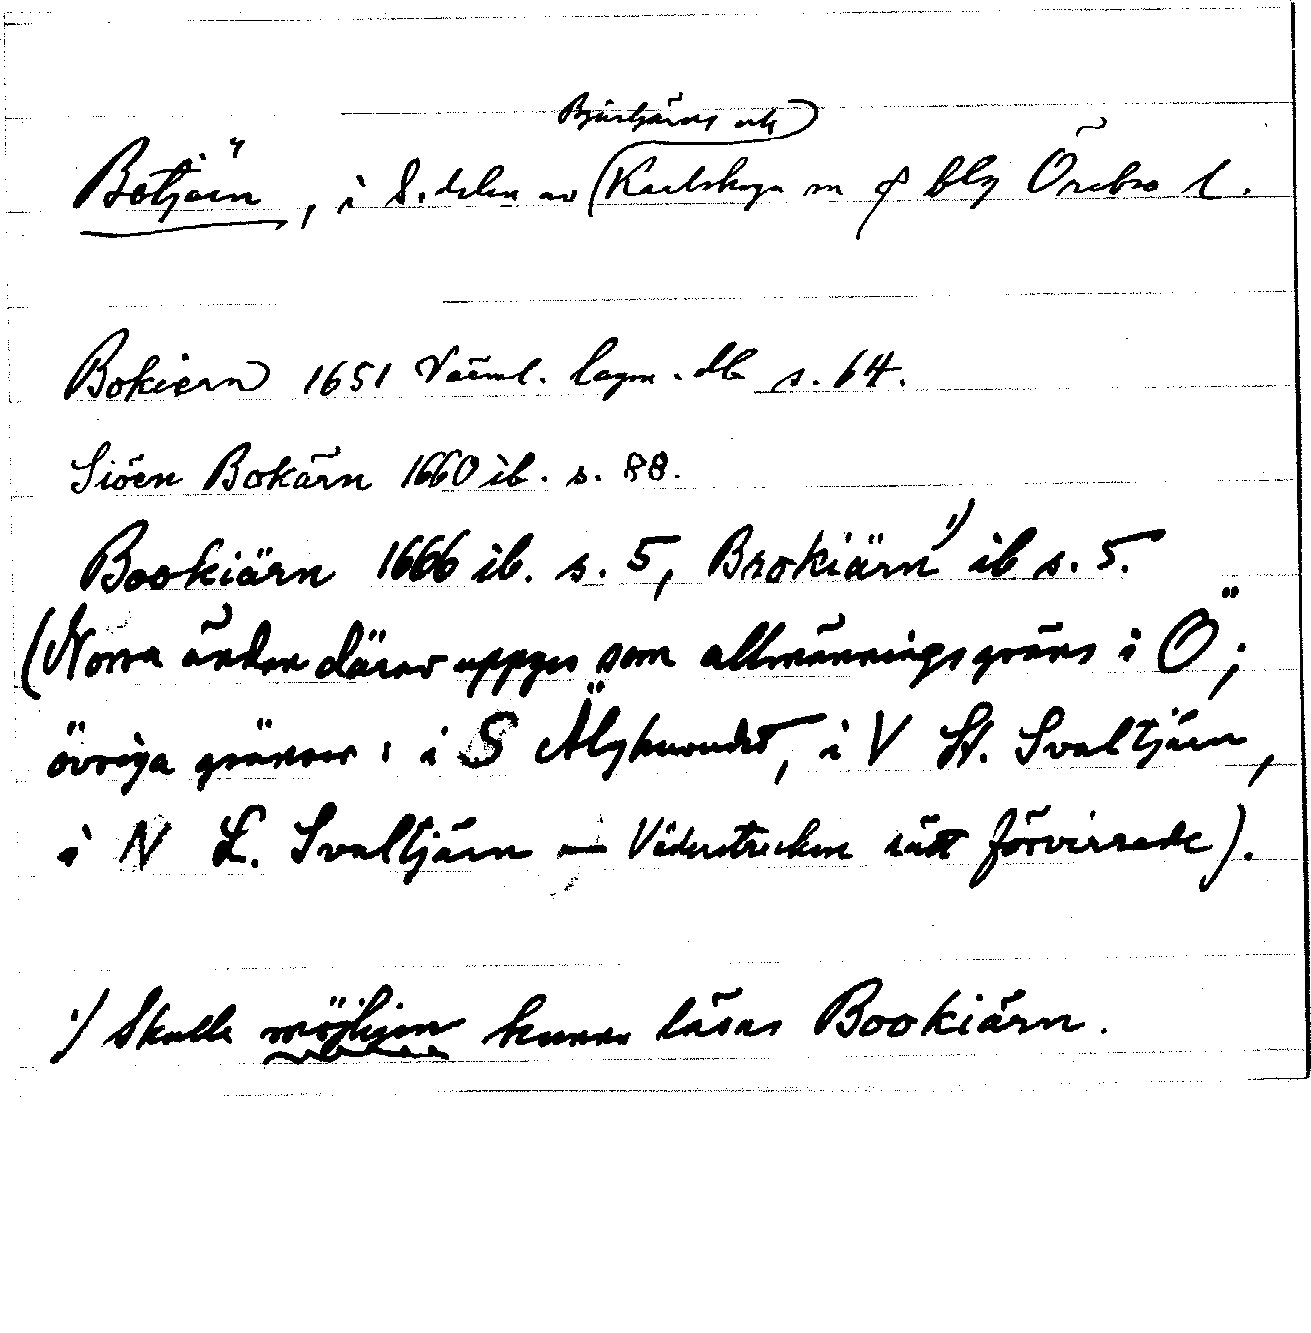 Bjurtjärns och
Botjärn, i S. delen av Karlskoga sn o blg Örebro l.
Bokiern 1651 Värml. lagm. db s. 64.
Siöen Bokärn 1660 ib. s. 88.
Bookiärn 1666 ib. s. 5, Brokiärn 1) ib s. 5.
(Norra änden därav uppges som allmänningsgräns i Ö;
övriga gränser: i S Älghuvudet, i V St. Svaltjärn,
i N L. Svaltjärn – Väderstrecken rätt förvirrade).
1) Skulle möjligen kunna läsas Bookiärn.